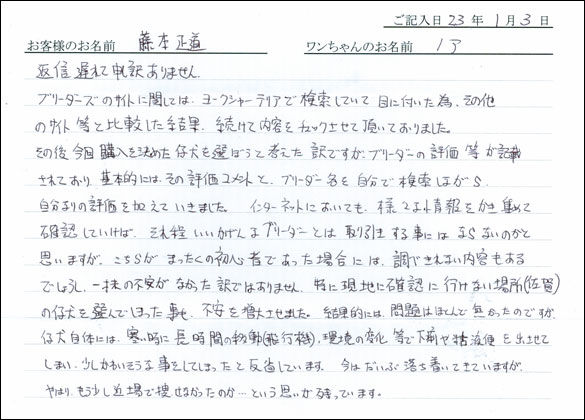 ご記入日 23 年 1 月 3 日
お客様のお名前 藤本 正道 ワンちゃんのお名前 ノア
返信遅れて申訳ありません。
ブリーダーズのサイトに関しては、ヨークシャーテリアで検索していて目に付いた為、その他
のサイト等と比較した結果、続けて内容をチェックさせて頂いておりました。
その後今回購入を決めた仔犬を選ぼうと考えた訳ですが、ブリーダーの評価等が記載
されており、基本的には、その評価コメントと、ブリーダー名を自分で検索しながら、
自分なりの評価を加えていきました。 インターネットにおいても、様々な情報をかき集めて
確認していけば、それ程いいかげんなブリーダーとは取引きする事にはならないのかと
思いますが、こちらがまったくの初心者であった場合には、調べきれない内容もある
でしょうし、一抹の不安がなかった訳ではありません。特に現地に確認に行けない場所(佐賀)
の仔犬を選んでしまった事も、不安を増大させました。結果的には、問題はほとんど無かったのですが、
仔犬自体には、寒い時に長時間の移動(飛行機)、環境の変化等で下痢や粘液便を出させて
しまい、少しかわいそうな事をしてしまったと反省しています。今はだいぶ落ち着いてきていますが、
やはりもう少し近場で捜せなかったのか…という思いが残っています。